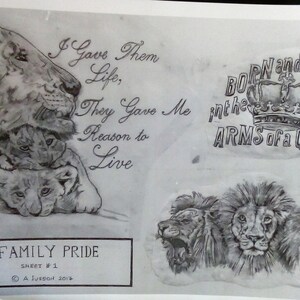 I Gave Them
Life,
They Gave Me
Reason to
Live
BORN and
in the
ARMS of a
FAMILY PRIDE
SHEET # 1
2012